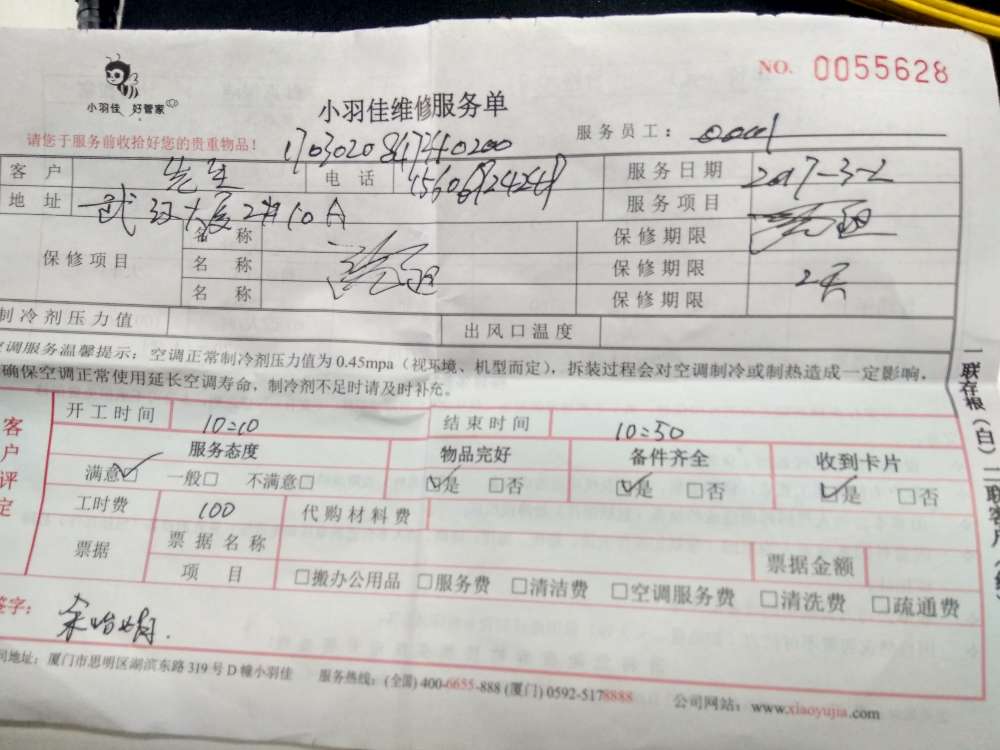 NO. 0055628
小羽佳 好管家
小羽佳维修服务单
请您于服务前收拾好您的贵重物品！
服务员工：
客户 先生 电话 服务日期 2017-3-2
地址 武汉大厦2#10A 服务项目
保修项目 名称 保修期限
名称 保修期限
名称 保修期限
制冷剂压力值 出风口温度
空调服务温馨提示：空调正常制冷剂压力值为 0.45mpa（视环境、机型而定），拆装过程会对空调制冷或制热造成一定影响，
确保空调正常使用延长空调寿命，制冷剂不足时请及时补充。
一联存根（白）二联客户（红）
客户评定
开工时间 10=10 结束时间 10=50
服务态度 物品完好 备件齐全 收到卡片
满意☑ 一般□ 不满意□ ☑是 □否 ☑是 □否 ☑是 □否
工时费 100 代购材料费
票据 票据名称 票据金额
项目 □搬办公用品 □服务费 □清洁费 □空调服务费 □清洗费 □疏通费
签字：
司地址：厦门市思明区湖滨东路 319 号 D 幢小羽佳 服务热线：(全国) 400-6655-888 (厦门) 0592-5178888 公司网站：www.xiaoyujia.com